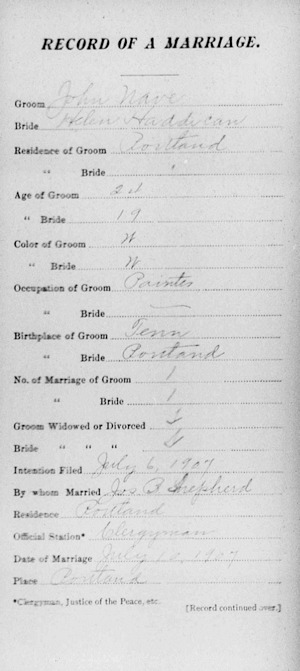 RECORD OF A MARRIAGE.
Groom John Nave
Bride Helen Haddican
Residence of Groom Portland
" Bride "
Age of Groom 21
" Bride 19
Color of Groom W
" Bride W
Occupation of Groom Painter
" Bride —
Birthplace of Groom Tenn
" Bride Portland
No. of Marriage of Groom 1
" Bride 1
Groom Widowed or Divorced
Bride " " "
Intention Filed July 6, 1907
By whom Married Jos B Shepherd
Residence Portland
Official Station* Clergyman
Date of Marriage July 10, 1907
Place Portland
*Clergyman, Justice of the Peace, etc.
[Record continued over.]